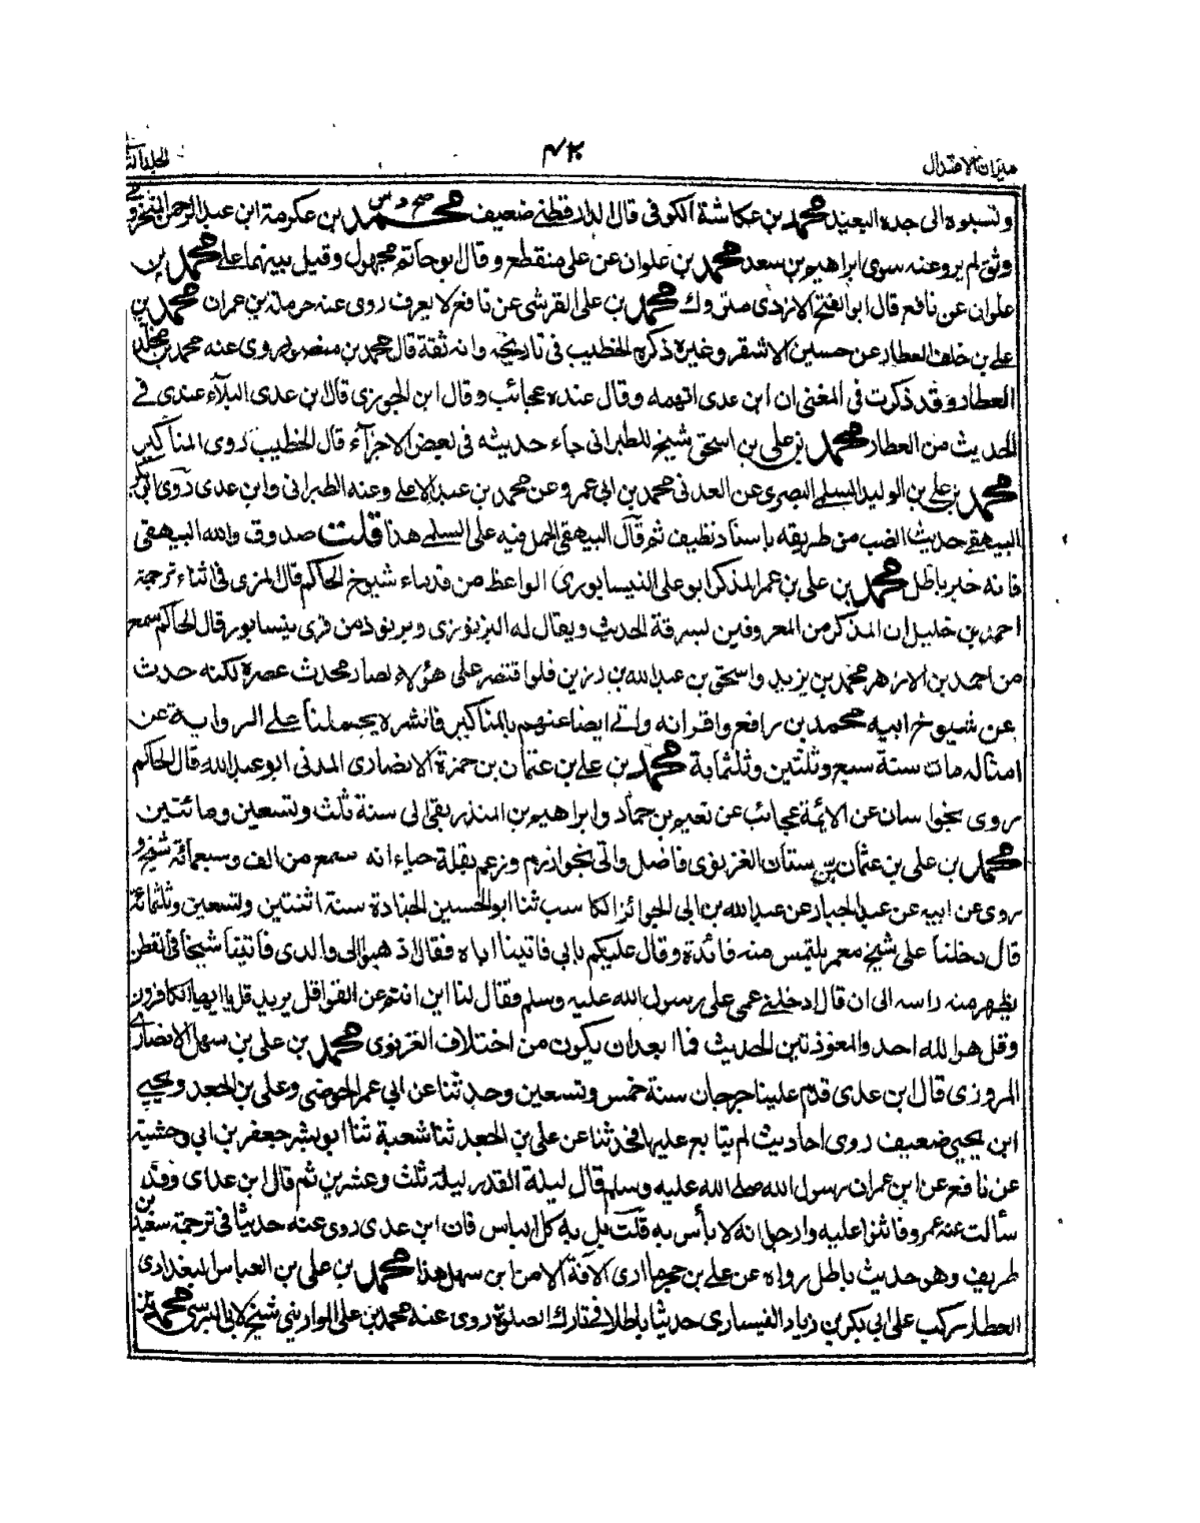 ميزان الاعتدال ٤٢٠ الجلد الثا
ونسبوه الى جده البعيد محمد بن عكاشة الكوفى قال الدارقطنى ضعيف محمد بن عكرمة ابن عبد الرحمن المخزومى
وثق لم يرو عنه سوى ابراهيم بن سعد محمد بن علوان عن على منقطع وقال ابو حاتم مجهول وقيل بينهما على محمد بن
علوان عن نافع قال ابو الفتح الازدى متروك محمد بن على القرشى عن نافع لا يعرف روى عنه حرملة بن عمران محمد بن
على بن خلف العطار عن حسين الاشقر وغيره ذكره الخطيب فى تاريخه وانه ثقة قال محمد بن منصور روى عنه محمد بن مخلد
العطار وقد ذكرت فى المغنى ان ابن عدى اتهمه وقال عنده عجائب وقال ابن الجوزى قال ابن عدى البلاء عندى فى
الحديث من العطار محمد بن على بن اسحق شيخ للطبرانى جاء حديثه فى بعض الاجزاء قال الخطيب روى المناكير
محمد بن على بن الوليد السلمى البصرى عن العدنى محمد بن ابى عمر وعن محمد بن عبد الاعلى وعنه الطبرانى وابن عدى روى ابو بكر
البيهقى حديث الضب من طريقه باسناد نظيف ثم قال البيهقى الحمل فيه على السلمى هذا قلت صدوق والله البيهقى
فانه خبر باطل محمد بن على بن عمر المذكر ابو على النيسابورى الواعظ من قدماء شيوخ الحاكم قال المزى فى اثناء ترجمة
احمد بن خليل ان المذكر من المعروفين بسرقة الحديث ويقال له البزنوزى وبرنوذ من قرى نيسابور قال الحاكم سمع
من احمد بن الازهر محمد بن يزيد واسحق بن عبد الله بن رزين فلو اقتصر على هؤلاء لصار محدث عصره لكنه حدث
عن شيوخ ابيه محمد بن رافع واقرانه واتى ايضا عنهم بالمناكير فانشره يحملنا على الرواية عن
امثاله مات سنة سبع وثلثين وثلثماية محمد بن على بن عثمان بن حمزة الانصارى المدنى ابو عبد الله قال الحاكم
روى بخراسان عن الائمة عجائب عن نعيم بن حماد وابراهيم بن المنذر بقى الى سنة ثلث وتسعين ومائتين
محمد بن على بن عثمان بن ستان الغزنوى فاضل واتى بخوارزم وزعم بقلة حياء انه سمع من الف وسبعمائة شيخ و
روى عن ابيه عن عبد الجبار عن عبد الله بن ابى الجوائز الكاسب ثنا ابو الحسين الجنادة سنة اثنتين وتسعين وثلثمائة
قال دخلنا على شيخ معمر يلتمس منه فائدة وقال عليكم بابى فاتينا اباه فقال اذهبوا الى والدى فاتينا شيخا فى القطن
يظهر منه راسه الى ان قال ادخلنى عمى على رسول الله عليه وسلم فقال لنا اين انتم عن القوافل يريد قل يا ايها الكافرون
وقل هو الله احد والمعوذتين الحديث فما ابعد ان يكون من اختلاف الغزنوى محمد بن على بن سهل الانصارى
المروزى قال ابن عدى قدم علينا جرجان سنة خمس وتسعين وحدثنا عن ابى عمر الحوضى وعلى بن الجعد ويحيى
ابن يحيى ضعيف روى احاديث لم يتابع عليها فحدثنا عن على بن الجعد ثنا شعبة ثنا ابو بشر جعفر بن ابى وحشية
عن نافع عن ابن عمر ان رسول الله صلى الله عليه وسلم قال ليلة القدر ليلة ثلث وعشرين ثم قال ابن عدى وقد
سألت عنه عمر وفاثنوا عليه وارجو انه لا بأس به قلت بل به كل الباس فان ابن عدى روى عنه حديثا فى ترجمة سعيد بن
طريف وهو حديث باطل رواه عن على بن حجر ما ارى الآفة الا من ابن سهل هذا محمد بن على بن العباس البغدادى
العطار ركب على ابى بكر بن زياد النيسابورى حديثا باطلا فى تارك الصلوة روى عنه محمد بن على الموازينى شيخ لابى النرسى محمد بن